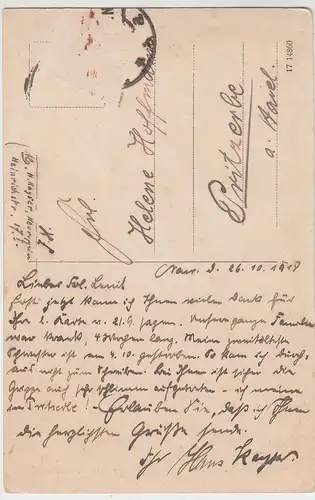 17 14860
Frl.
Helene Hoffmann
Pritzerbe
a. Havel.
Abs. H. Kayser,
Heinrichstr.
d. 26.10.1918
Liebes Frl.
Erst jetzt kann ich Ihnen vielen Dank für
Ihre 2. Karte v. 21.9. sagen. Unsere ganze Familie
war krank, 4 Wochen lang. Meine zweitälteste
Schwester ist am 4.10. gestorben. So kam ich durch-
aus nicht zum Schreiben. Bei Ihnen ist sicher die
Grippe auch sehr schlimm aufgetreten - ich meine
in Pritzerbe. - Erlauben Sie, daß ich Ihnen
die herzlichsten Grüße sende.
Ihr Hans Kayser.